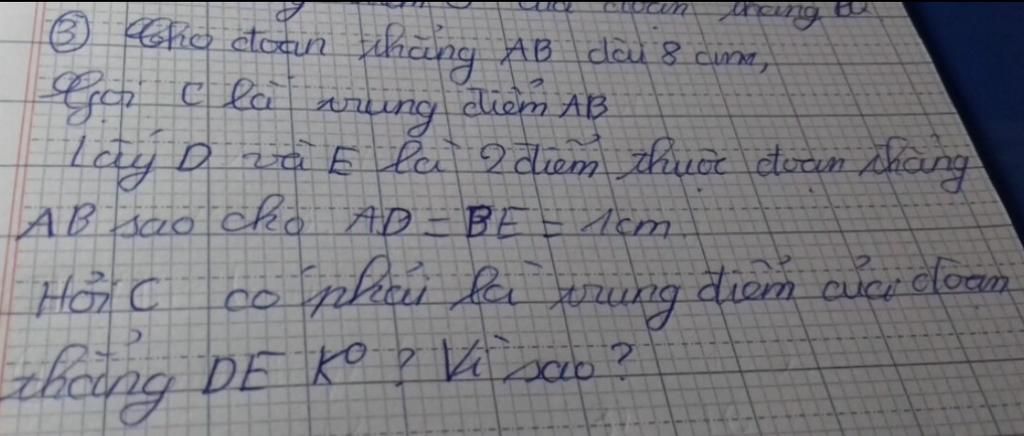 điểm của đoạn thẳng
③ Cho đoạn thẳng AB dài 8 cm,
Gọi C là trung điểm AB
Lấy D và E là 2 điểm thuộc đoạn thẳng
AB sao cho AD = BE = 1cm.
Hỏi C có phải là trung điểm của đoạn
thẳng DE K⁰? Vì sao?